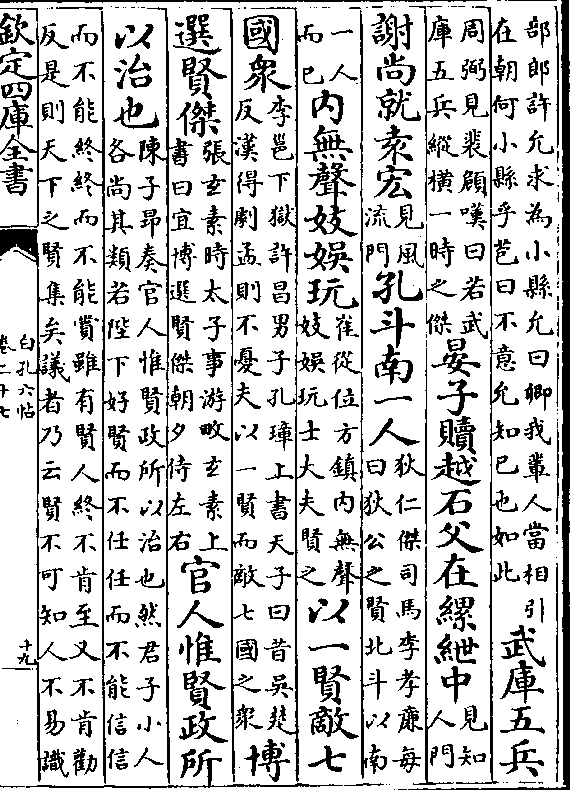 部郎許允求為小縣允曰卿我輩人當相引
在朝何小縣乎苞曰不意允知己也如此
武庫五兵
周弼見裴頠嘆曰若武
庫五兵縱橫一時之傑
晏子贖越石父在縲紲中
見知
人門
謝尚就袁宏
見風
流門
孔斗南一人
狄仁傑司馬李孝廉每
曰狄公之賢北斗以南
一人
而已
内無聲妓娛玩
崔從位方鎮内無聲
妓娛玩士大夫賢之
以一賢敵七
國衆
李邕下獄許昌男子孔璋上書天子曰昔吳楚
反漢得劇孟則不憂夫以一賢而敵七國之衆
博
選賢傑
張玄素時太子事游畋玄素上
書曰宜博選賢傑朝夕侍左右
官人惟賢政所
以治也
陳子昻奏官人惟賢政所以治也然君子小人
各尚其類若陛下好賢而不任任而不能信信
而不能終終而不能賞雖有賢人終不肯至又不肯勸
反是則天下之賢集矣議者乃云賢不可知人不易識
欽定四庫全書
白孔六帖
卷二十七
十九